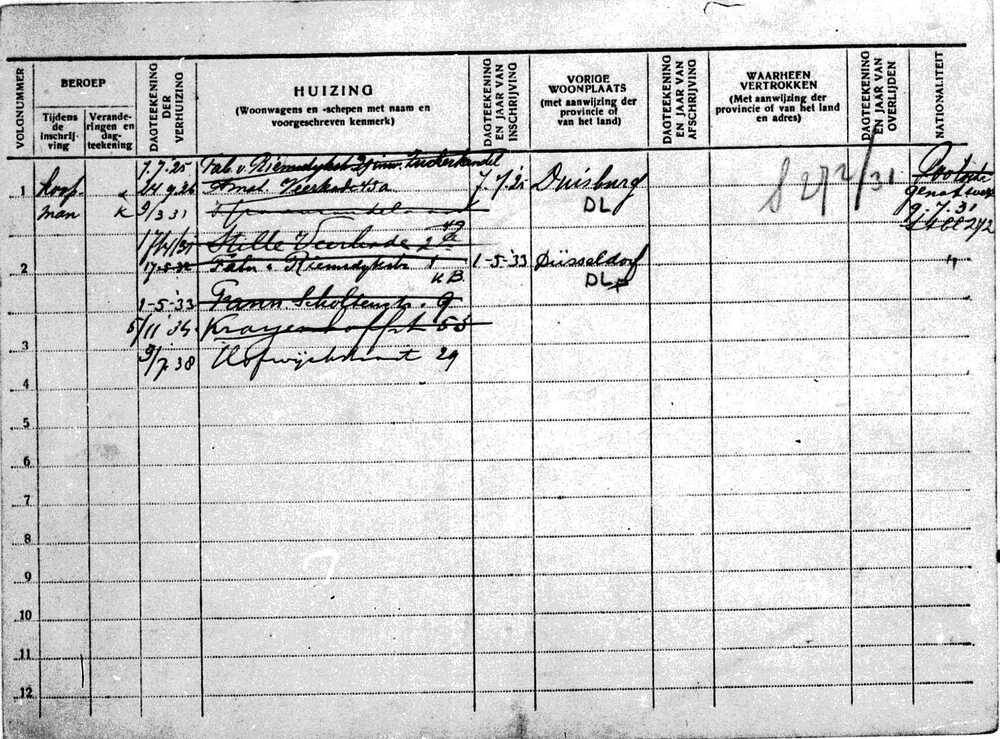 VOLGNUMMER
BEROEP
Tijdens de inschrijving
Verande-ringen en dag-teekening
DAGTEEKENING DER VERHUIZING
HUIZING
(Woonwagens en -schepen met naam en voorgeschreven kenmerk)
DAGTEEKENING EN JAAR VAN INSCHRIJVING
VORIGE WOONPLAATS
(met aanwijzing der provincie of van het land)
DAGTEEKENING EN JAAR VAN AFSCHRIJVING
WAARHEEN VERTROKKEN
(Met aanwijzing der provincie of van het land en adres)
DAGTEEKENING EN JAAR VAN OVERLIJDEN
NATIONALITEIT
7.7.25
1 Koop- 24.9.26 Amst. Veerkade 7.7.25 Duisburg 8 272/31 Poolsche
man K 9/3 31 DL 9.7.31
17/4/31 Stille Veerkade 2
2 17-5-32 Fabr. v. Riemsdykstr. 1 1-5-'33 Düsseldorf "
KB. DL
1-5-'33 Fann. Scholtenstr.
5/11 34 Krayenhoffstr 53
3 9/7 38 Hofwijckstraat 29
4
5
6
7
8
9
10
11
12